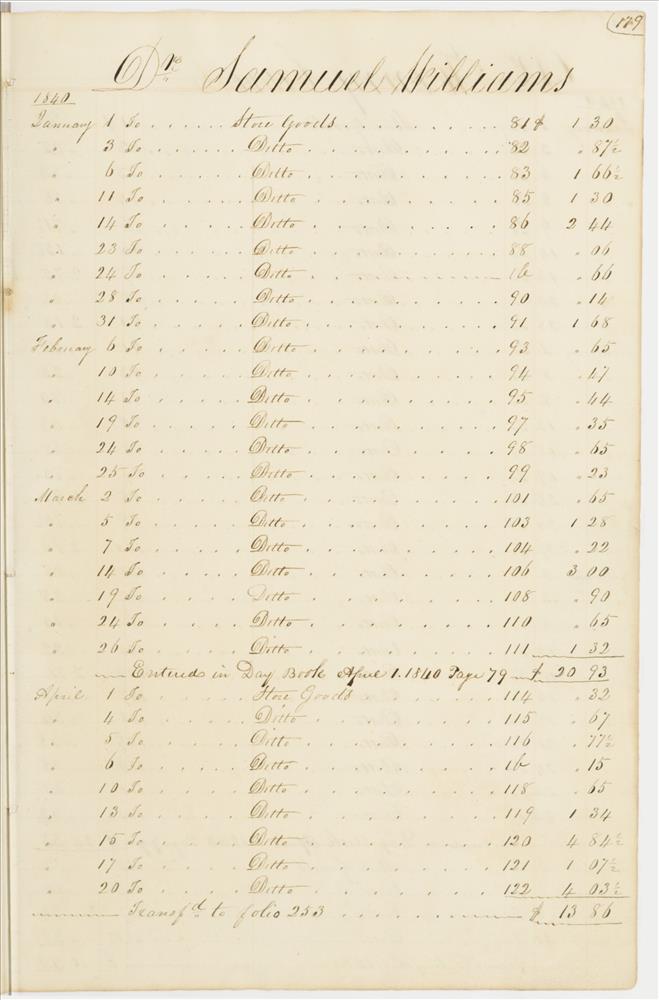 179
Dr. Samuel Williams
1840
January 1 To . . . . . . Store Goods . . . . . . . . . . 81 $ 1 30
" 3 To . . . . . Ditto . . . . . . . . . 82 . 87½
" 6 To . . . . . Ditto . . . . . . . . . 83 1 66½
" 11 To . . . . . Ditto . . . . . . . . . 85 1 30
" 14 To . . . . . Ditto . . . . . . . . . 86 2 44
" 23 To . . . . . Ditto . . . . . . . . . 88 . 06
" 24 To . . . . . Ditto . . . . ib . 66
" 28 To . . . . . Ditto . . . . . . . . . 90 . 14
" 31 To . . . . . Ditto . . . . . . . . . 91 1 68
February 6 To . . . . . Ditto . . . . . . . . . 93 . 65
" 10 To . . . . . Ditto . . . . . . . . . 94 . 47
" 14 To . . . . . Ditto . . . . . . . . . 95 . 44
" 19 To . . . . . Ditto . . . . . . . . . 97 . 35
" 24 To . . . . . Ditto . . . . . . . . . 98 . 65
" 25 To . . . . . Ditto . . . . . . . . . 99 . 23
March 2 To . . . . . Ditto . . . . . . . . . 101 . 65
" 5 To . . . . . Ditto . . . . . . . . . 103 1 28
" 7 To . . . . . Ditto . . . . . . . . . 104 . 22
" 14 To . . . . . Ditto . . . . . . . . . 106 3 00
" 19 To . . . . . Ditto . . . . . . . . . 108 . 90
" 24 To . . . . . Ditto . . . . . . . . . 110 . 65
" 26 To . . . . . Ditto . . . . . . . . . 111 1 32
Entered in Day Book April 1. 1840 Page 79 $ 20 93
April 1 To . . . . . Store Goods . . . . . . . 114 . 32
" 4 To . . . . . Ditto . . . . . . . . . 115 . 67
" 5 To . . . . . Ditto . . . . . . . . . 116 . 77½
" 6 To . . . . . Ditto . . . . . . . . . ib . 15
" 10 To . . . . . Ditto . . . . . . . . . 118 . 65
" 13 To . . . . . Ditto . . . . . . . . . 119 1 34
" 15 To . . . . . Ditto . . . . . . . . . 120 4 84½
" 17 To . . . . . Ditto . . . . . . . . . 121 1 07½
" 20 To . . . . . Ditto . . . . . . . . . 122 4 03½
Transfd to folio 253 . . . . . . . $ 13 86